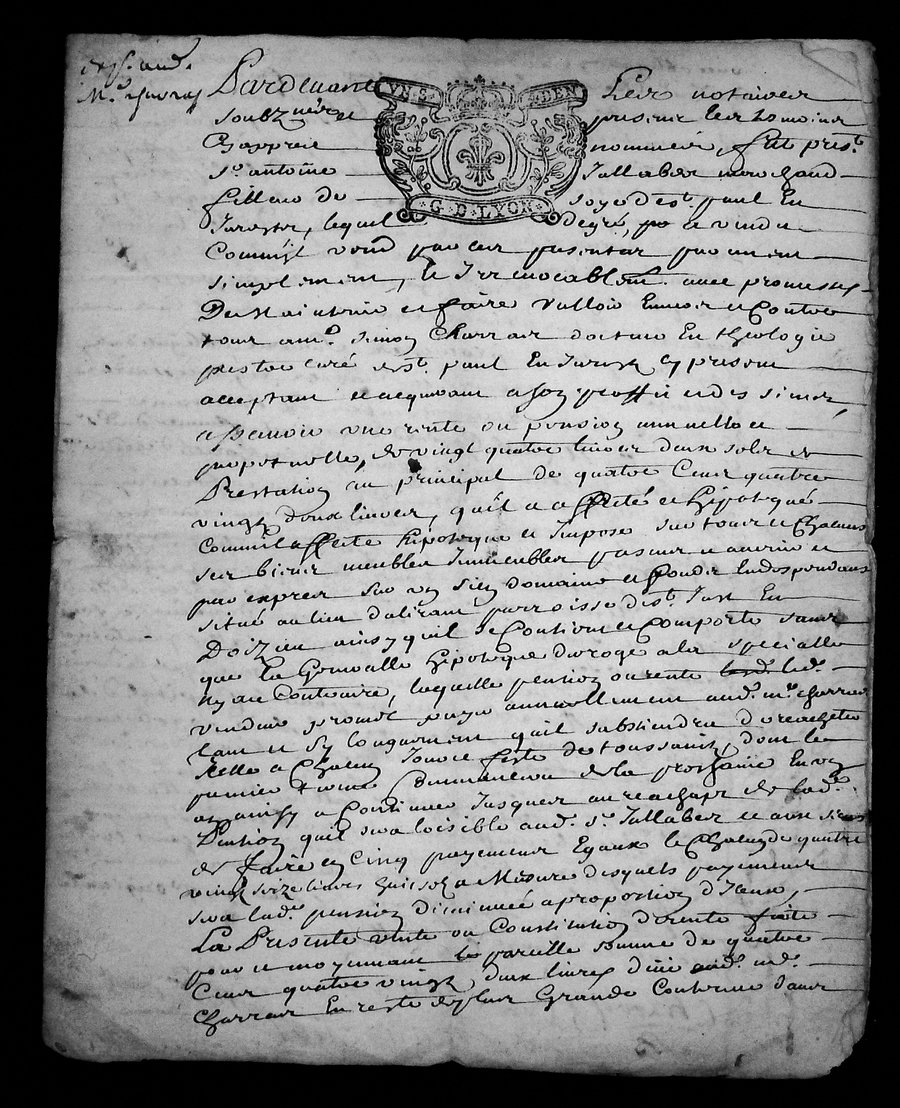 exp. aud.
Mr. charras
VN S. S DEN
G. D. LYON
Pardevant Les notaires
soubznés et presens les tesmoins
Cy appres nommés, fut prést.
sr. antoine Tallaber marchand
filleur de soye de st. paul En
Jarest, lequel de gré, a vendu
Comm'il vend par ces presentes purement
simplement, et Irrevocablemt. avec promesse
De maintenir et faire valloir Envers et Contre
tous a mre. simon Charras docteur En theologie
prestre curé de st. paul En Jarest Cy present
acceptant et acquerant a son proffit et des siens,
a sçavoir une rente ou pension annuelle et
perpetuelle, de vingt quatre livres deux sols et
Prestation au principal de quatre Cens quatre
vingt deux livres, qu'il a affecté et hipotequé
Comm'il affecte hipoteque et Impose sur tous et Chacuns
ses biens meubles Immeubles presens et avenir et
par exprés sur un sien domaine et fonds En dependans
situé au lieu parroisse de st. Just En
Doizieu ainsy qu'il se Contient et Comporte sans
que la Generalle hipoteque deroge a la specialle
Ny au Contraire, laquelle pension ou rente led.
vendeur promet payer annuellement aud. mre. Charras
tant et sy longuement qu'il substiendra d'orachepter
Icelle a Chacun Jour et feste de toussaints, dont le
premier terme Commencera de la prochaine En un
an ainsy a Continuer Jusques au reachapt de lad.
Pension qu'il sera loisible aud. sr. Tallaber et aux siens
de faire en Cinq payemens Egaux le Chacun de quatre
vingt seize livres huit sols a Mesure desquels payemens
sera lad. pension diminuée a proportion d'Iceux,
La Presente vente ou Constitution de rente faite
pour et moyennant pareille somme de quatre
Cens quatre vingt deux livres aud. mre.
Charras En reste de plus Grande Contenue dans